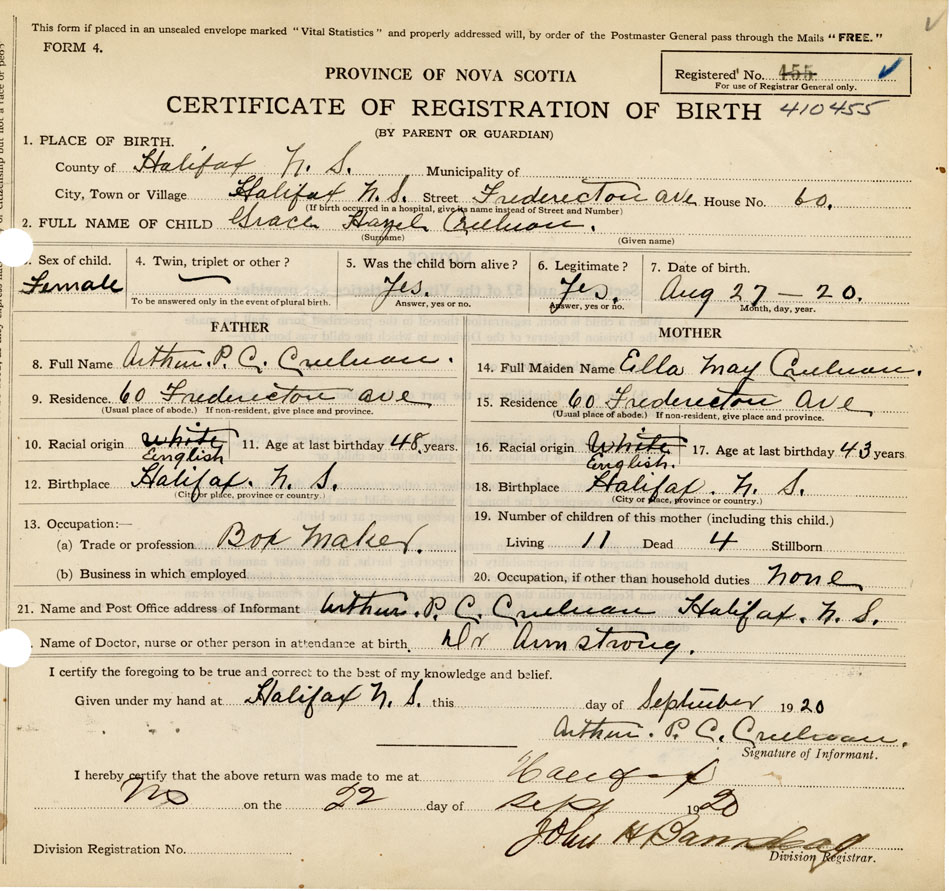 This form if placed in an unsealed envelope marked "Vital Statistics" and properly addressed will, by order of the Postmaster General pass through the Mails "FREE."
FORM 4.
PROVINCE OF NOVA SCOTIA
Registered No. 455
For use of Registrar General only.
CERTIFICATE OF REGISTRATION OF BIRTH 410455
(BY PARENT OR GUARDIAN)
1. PLACE OF BIRTH.
County of Halifax N. S. Municipality of
City, Town or Village Halifax N. S. Street Fredericton ave House No. 60.
(If birth occurred in a hospital, give its name instead of Street and Number)
2. FULL NAME OF CHILD Grace Hazel
(Surname) (Given name)
Sex of child. 4. Twin, triplet or other? 5. Was the child born alive? 6. Legitimate? 7. Date of birth.
Female — Yes. Yes. Aug 27 - 20.
To be answered only in the event of plural birth. Answer, yes or no. Answer, yes or no. Month, day, year.
FATHER MOTHER
8. Full Name Arthur. P. C. 14. Full Maiden Name Ella May
9. Residence. 60 Fredericton ave 15. Residence 60 Fredericton Ave
(Usual place of abode.) If non-resident, give place and province. (Usual place of abode.) If non-resident, give place and province.
10. Racial origin White 11. Age at last birthday 48 years. 16. Racial origin White 17. Age at last birthday 43 years
English English.
12. Birthplace Halifax. N. S. 18. Birthplace Halifax. N. S.
(City or place, province or country.) (City or place, province or country.)
13. Occupation:— 19. Number of children of this mother (including this child.)
(a) Trade or profession Box Maker. Living 11 Dead 4 Stillborn
(b) Business in which employed 20. Occupation, if other than household duties none
21. Name and Post Office address of Informant Arthur. P. C. Halifax. N. S.
. Name of Doctor, nurse or other person in attendance at birth. Dr Armstrong.
I certify the foregoing to be true and correct to the best of my knowledge and belief.
Given under my hand at Halifax N. S. this day of September 1920
Arthur. P. C.
Signature of Informant.
I hereby certify that the above return was made to me at Halifax
NS on the 22 day of Sept 1920
John H
Division Registration No. Division Registrar.